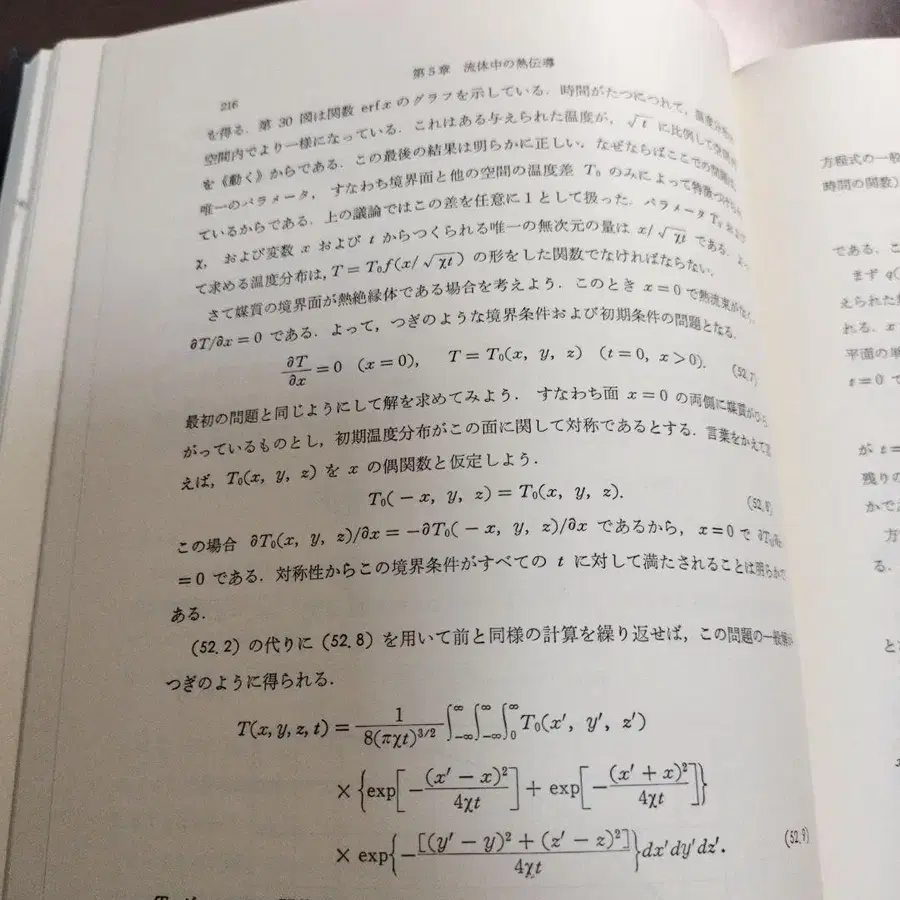 第5章 流体中の熱伝導
216
を得る. 第 30 図は関数 erfx のグラフを示している. 時間がたつにつれて, 温度分布は
空間内でより一様になっている. これはある与えられた温度が, √t に比例して空間
を《動く》からである. この最後の結果は明らかに正しい. なぜならばここでの
唯一のパラメータ, すなわち境界面と他の空間の温度差 T₀ のみによって特徴づけられ
ているからである. 上の議論ではこの差を任意に1として扱った. パラメータ T₀ および
χ, および変数 x および t からつくられる唯一の無次元の量は x/√χt である. よっ
て求める温度分布は, T=T₀f(x/√χt) の形をした関数でなければならない.
さて媒質の境界面が熱絶縁体である場合を考えよう. このとき x=0 で熱流束がなく,
∂T/∂x=0 である. よって, つぎのような境界条件および初期条件の問題となる.
∂T/∂x=0 (x=0), T=T₀(x, y, z) (t=0, x>0). (52.7)
最初の問題と同じようにして解を求めてみよう. すなわち面 x=0 の両側に媒質がひろ
がっているものとし, 初期温度分布がこの面に関して対称であるとする. 言葉をかえて言
えば, T₀(x, y, z) を x の偶関数と仮定しよう.
T₀(-x, y, z)=T₀(x, y, z). (52.8)
この場合 ∂T₀(x, y, z)/∂x=-∂T₀(-x, y, z)/∂x であるから, x=0 で ∂T₀/∂x
=0 である. 対称性からこの境界条件がすべての t に対して満たされることは明らかで
ある.
(52.2) の代りに (52.8) を用いて前と同様の計算を繰り返せば, この問題の一般解が
つぎのように得られる.
T(x,y,z,t)=1/8(πχt)^{3/2} ∫_{-∞}^{∞}∫_{-∞}^{∞}∫_0^{∞} T₀(x′, y′, z′)
×{exp[-(x′-x)²/4χt]+exp[-(x′+x)²/4χt]}
×exp{-[(y′-y)²+(z′-z)²]/4χt}dx′dy′dz′. (52.9)
方程式の一般
時間の関数)
である. こ
まず q(
えられた
れる. x
平面の単
t=0 で
が t=
残りの
かでお
方
る.
と